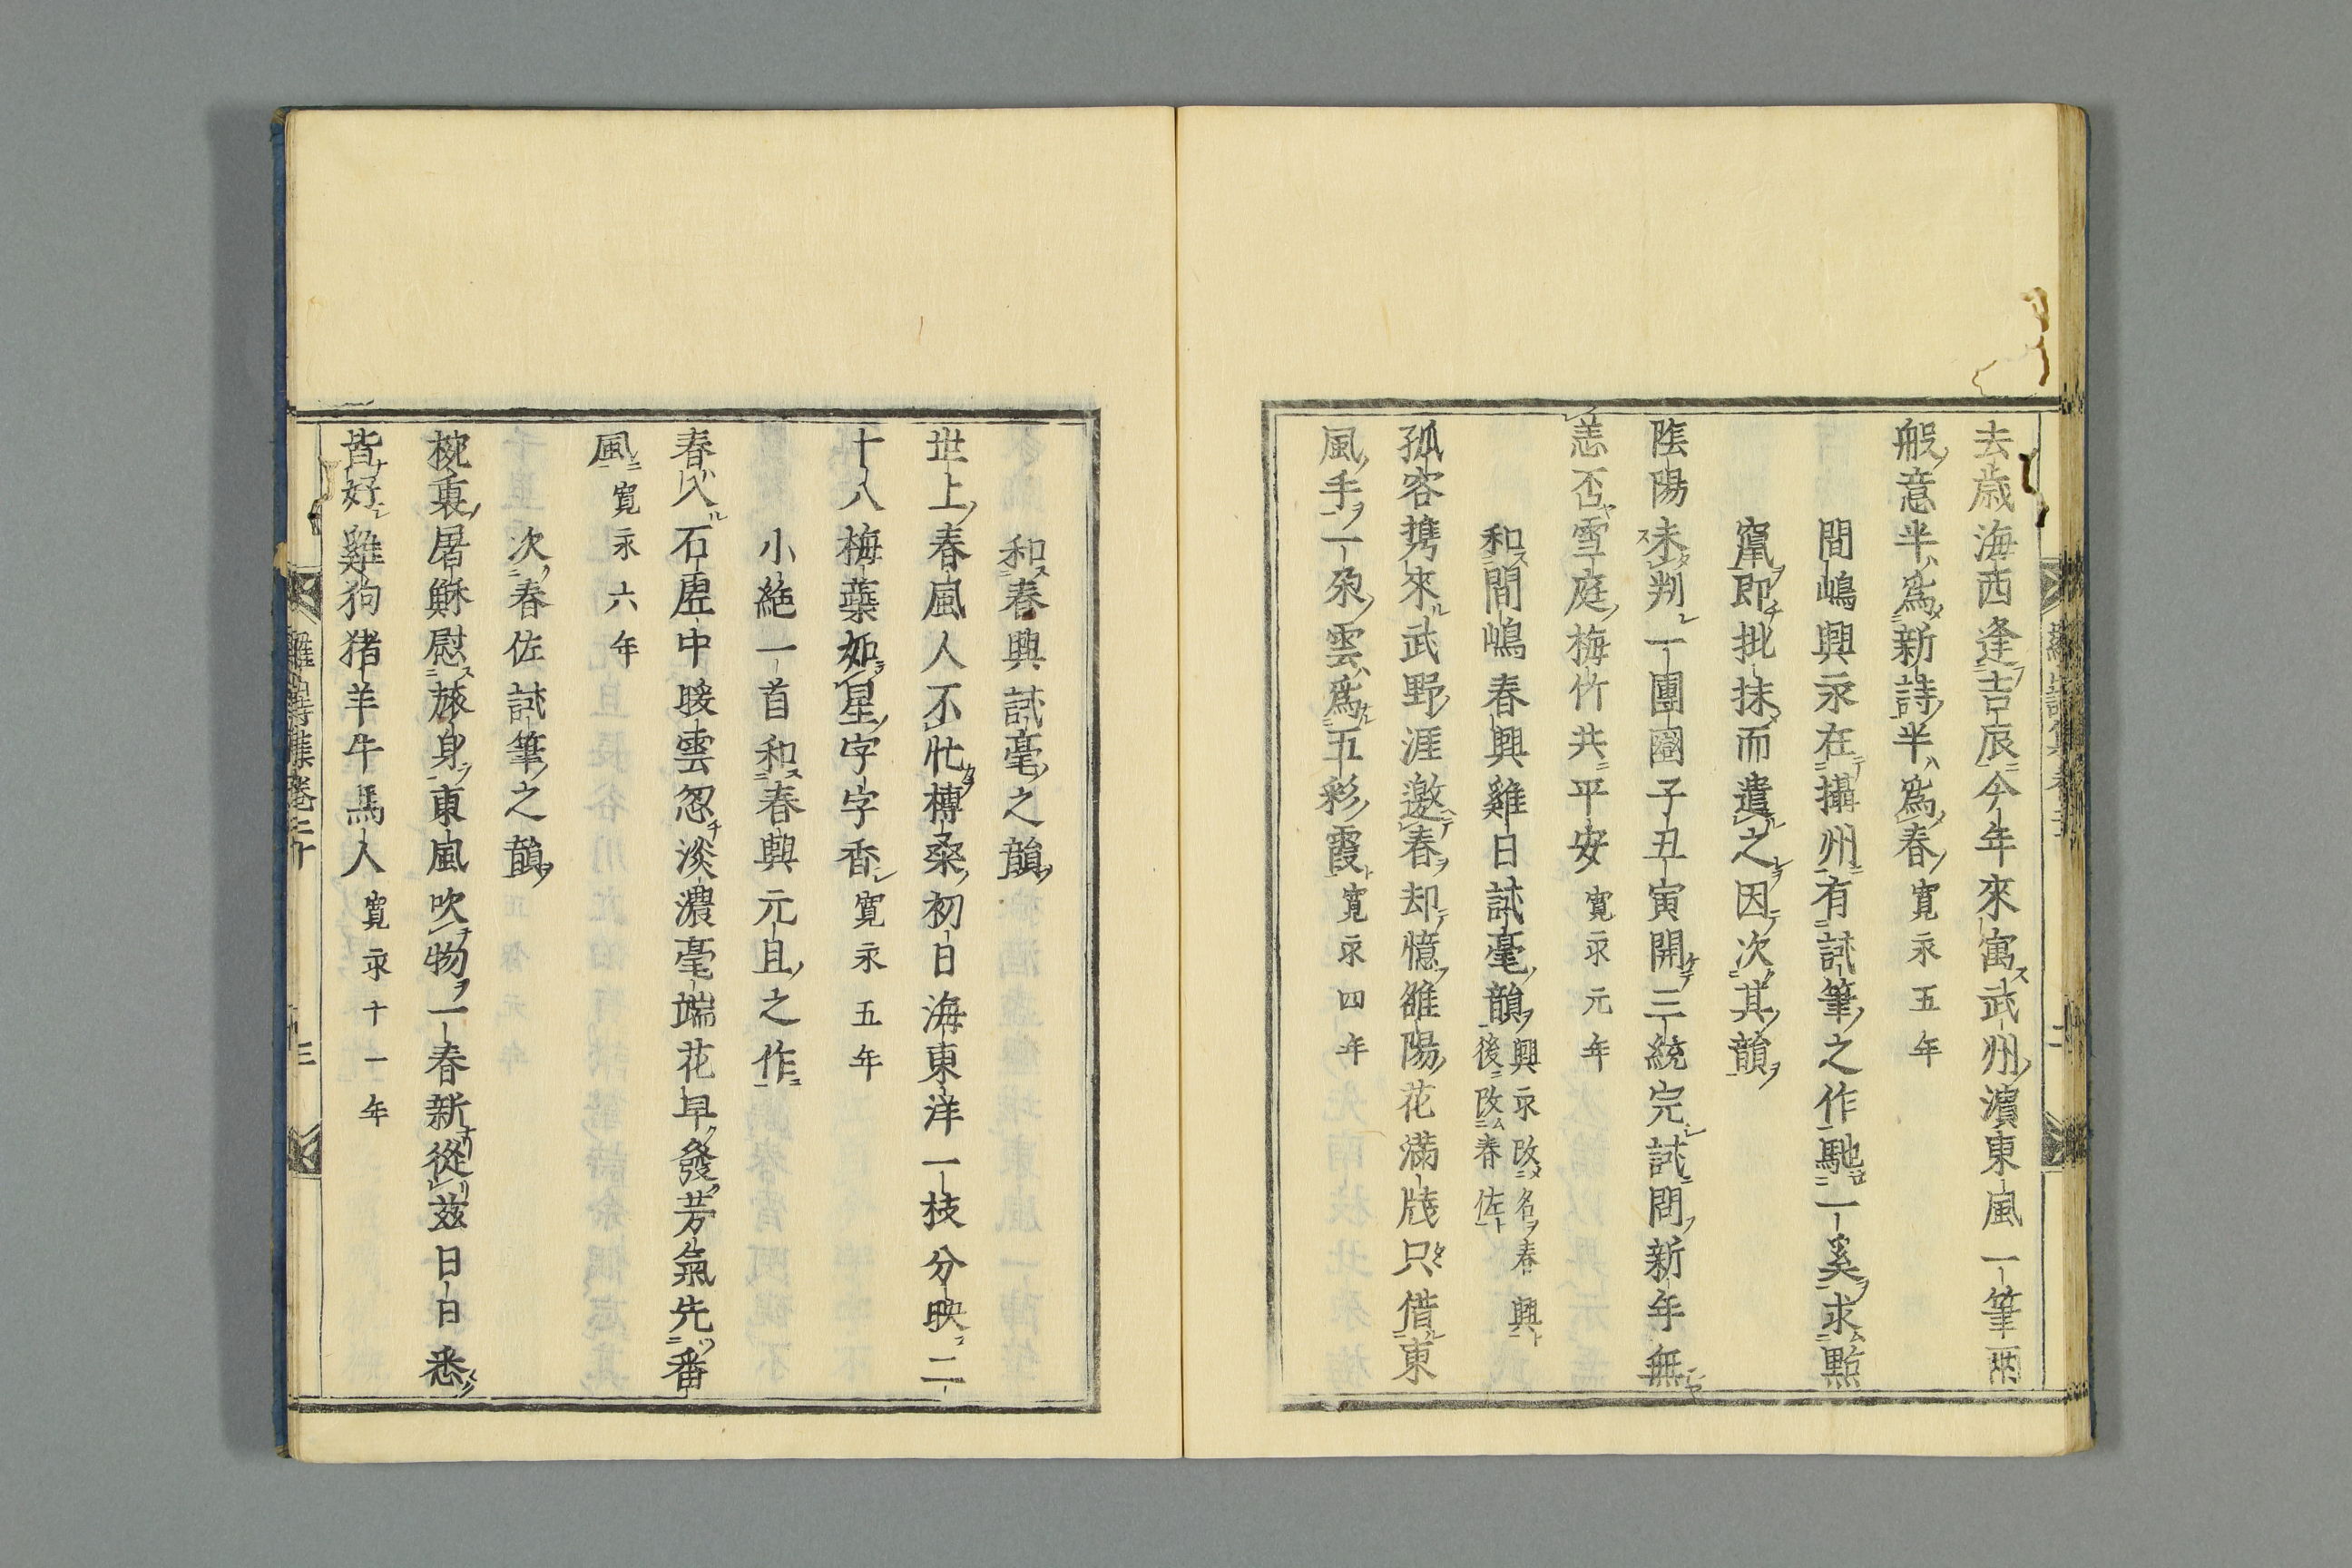 去歲海西逢吉辰今年來寓武州濵東風一筆兩
般意半爲新詩半爲春寛永五年
間嶋興永在攝州有試筆之作馳一奚求㸃
竄即批抹而遣之因次其韻
陰陽未判一團圝子丑寅開三統完試問新年無
恙否雪庭梅竹共平安寛永元年
和間嶋春興雞日試毫韻興永改名春興後改春佐
孤客携來武野涯邀春却憶雒陽花滿牋只借東
風手一朶雲爲五彩霞寛永四年
和春興試毫之韻
世上春風人不忙榑桑初日海東洋一枝分映二
十八梅蘂如星字字香寛永五年
小絶一首和春興元旦之作
春入石虗中暖雲忽淡濃毫端花早發芳氣先番
風寛永六年
次春佐試筆之韻
椀裏屠蘇慰旅身東風吹物一春新從茲日日悉
皆好雞狗猪羊牛馬人寛永十一年